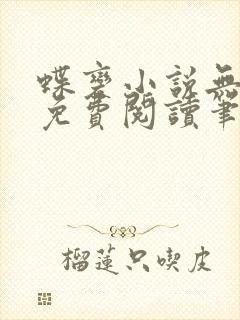 蝶變小說無
免費閱讀筆
榴蓮只喫皮